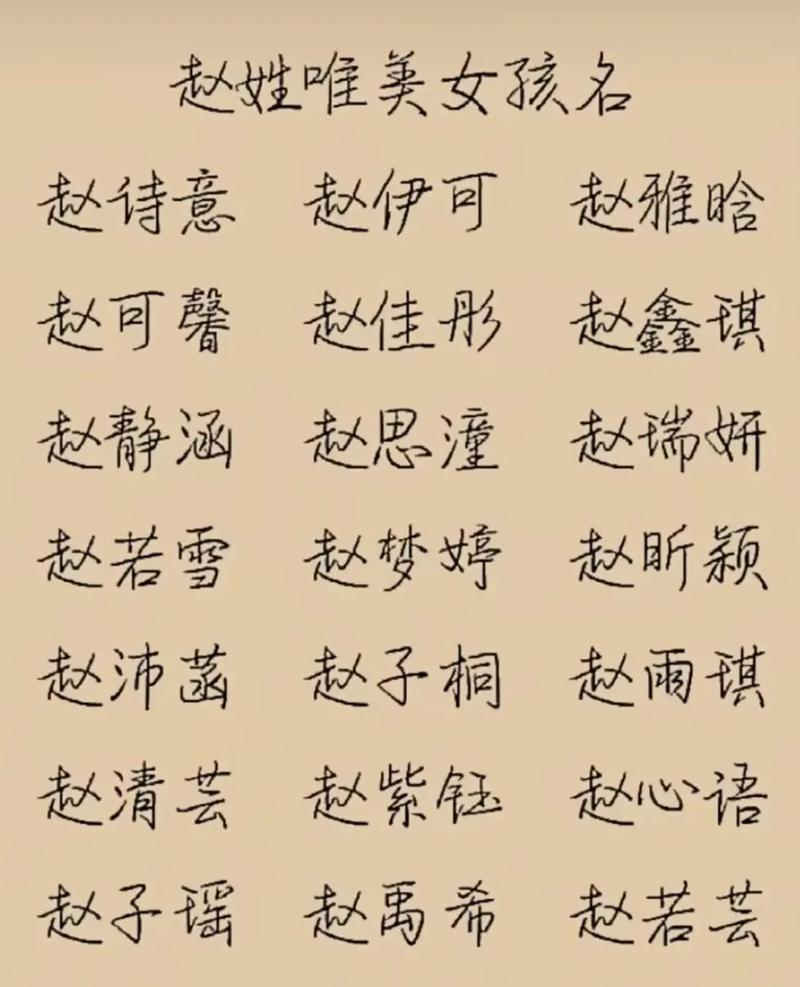 赵姓唯美女孩名
赵诗意 赵伊可 赵雅晗
赵可馨 赵佳彤 赵鑫琪
赵静涵 赵思潼 赵瑞妍
赵若雪 赵梦婷 赵昕颖
赵沛菡 赵子桐 赵雨琪
赵清芸 赵紫钰 赵心语
赵子瑶 赵禹希 赵若芸